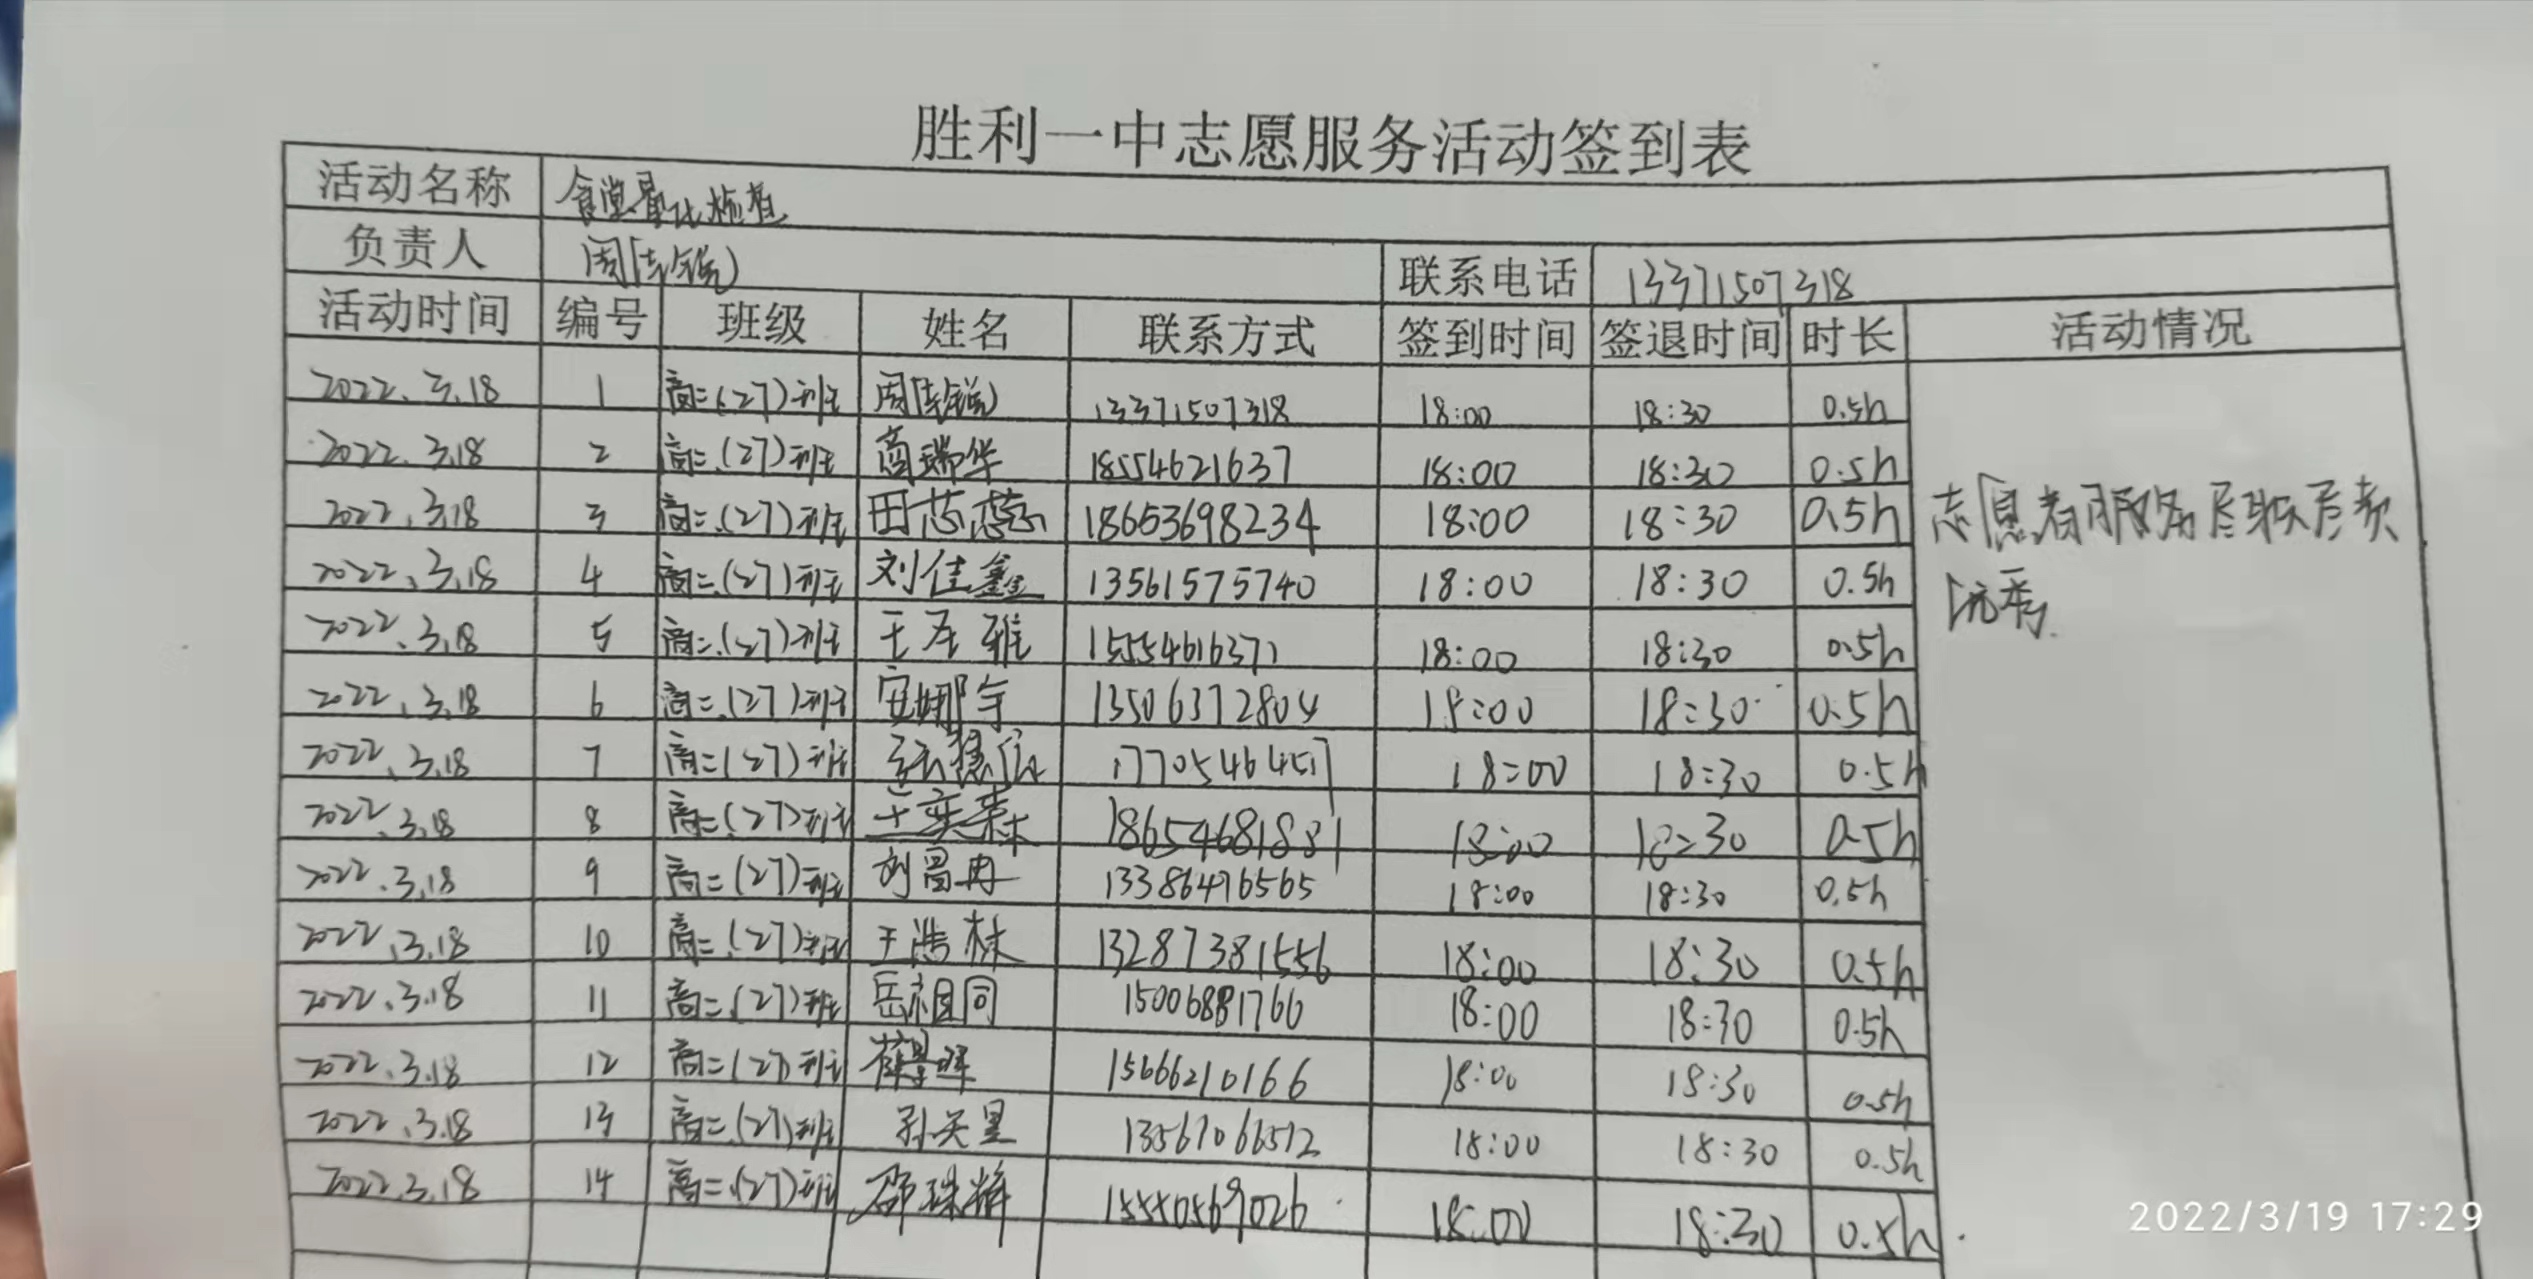 胜利一中志愿服务活动签到表
活动名称 食堂量化检查
负责人 联系电话 13371507318
活动时间 编号 班级 姓名 联系方式 签到时间 签退时间 时长 活动情况
2022.3.18 1 高二(27)班 13371507318 18:00 18:30 0.5h
2022.3.18 2 高二(27)班 商瑞华 18554621637 18:00 18:30 0.5h
2022.3.18 3 高二(27)班 田芯蕊 18653698234 18:00 18:30 0.5h
2022.3.18 4 高二(27)班 刘佳鑫 13561575740 18:00 18:30 0.5h
2022.3.18 5 高二(27)班 15554616371 18:00 18:30 0.5h
2022.3.18 6 高二(27)班 安娜宇 13506372804 18:00 18:30 0.5h
2022.3.18 7 高二(27)班 18:00 18:30 0.5h
2022.3.18 8 高二(27)班 王奕森 18654681881 18:00 18:30 0.5h
2022.3.18 9 高二(27)班 刘昌冉 13386476565 18:00 18:30 0.5h
2022.3.18 10 高二(27)班 王浩林 13287381556 18:00 18:30 0.5h
2022.3.18 11 高二(27)班 岳祖同 15006881766 18:00 18:30 0.5h
2022.3.18 12 高二(27)班 15666210166 18:00 18:30 0.5h
2022.3.18 13 高二(27)班 13561066512 18:00 18:30 0.5h
2022.3.18 14 高二(27)班 15550569026 18:00 18:30 0.5h
志愿者服务尽职尽责
优秀.
2022/3/19 17:29